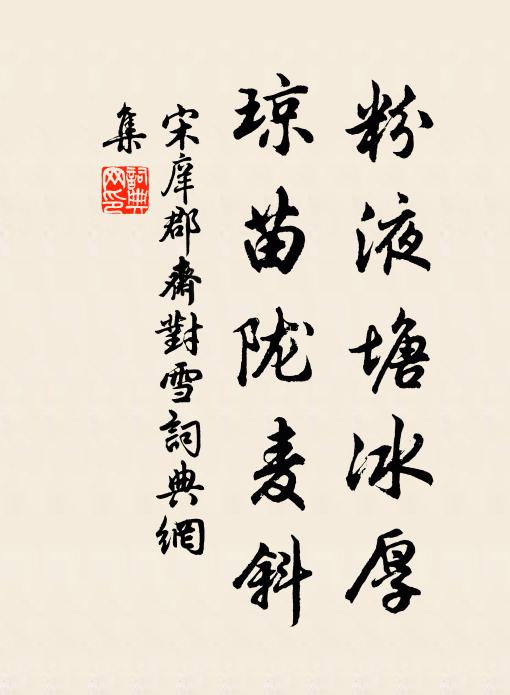 粉液塘冰厚
琼苗陇麦斜
宋庠郡斋對雪詞典網
集
詞典网印